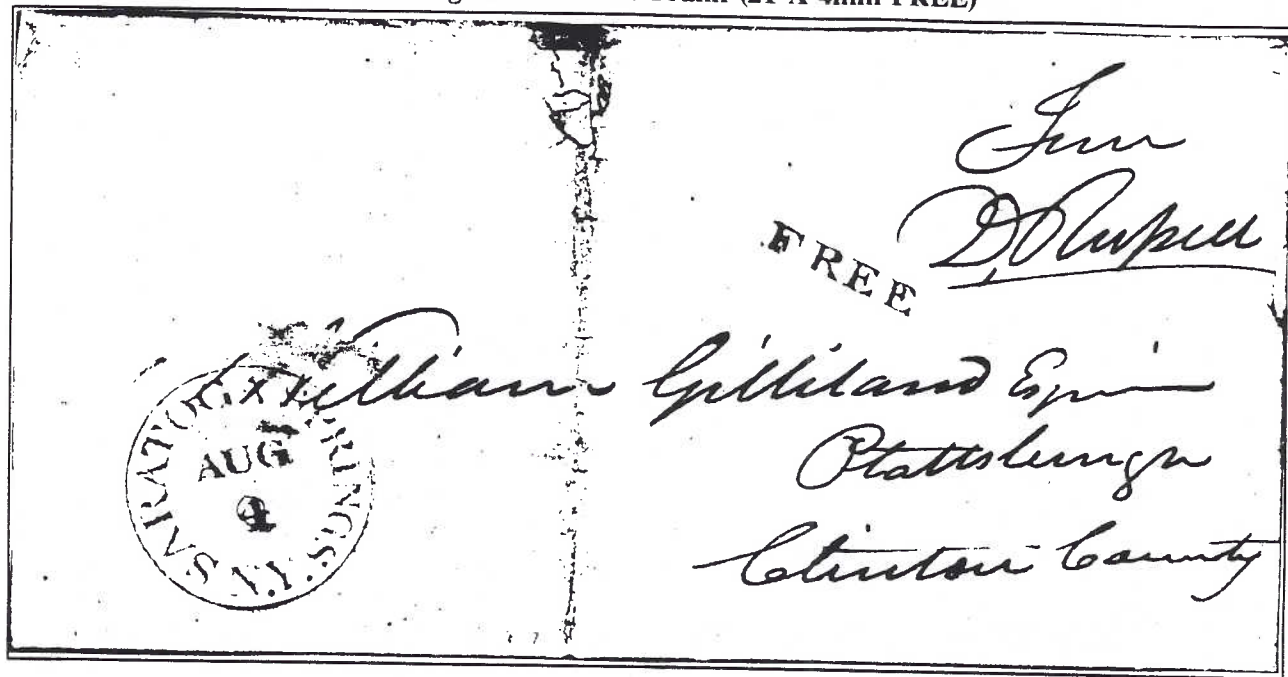 (21 X 4mm FREE)
Free
D. Russell
FREE
William Gilliland Esquire
Plattsburgh
Clinton County
SARATOGA SPRINGS. N.Y.
AUG
4